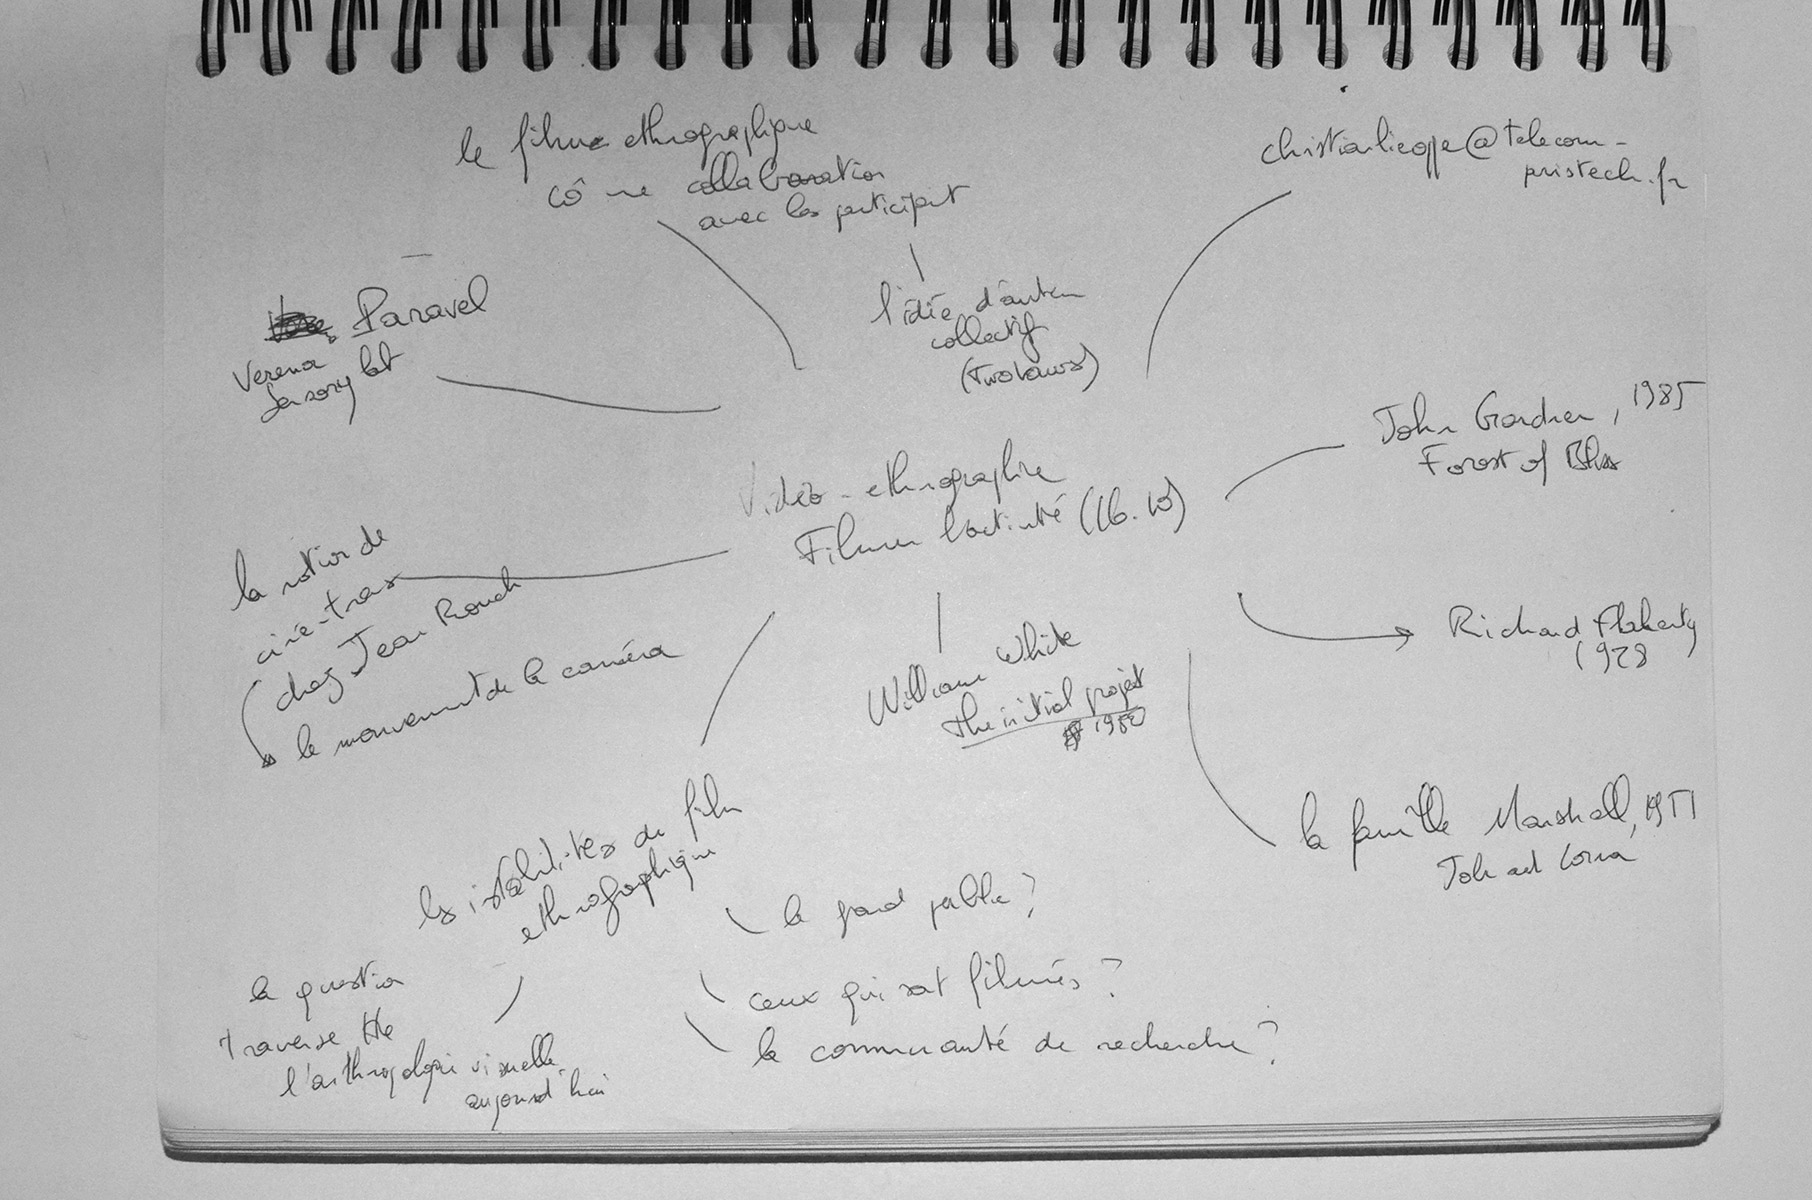 le filme ethnographique
cô ne collaboration
avec les participant
christianlicoppe@telecom-
pristech.fr
Paravel
Verena
Sensory lab
l'idée d'auteur
collectif
(Two Laws)
John Gardner, 1985
Forest of Bliss
Vidéo-ethnographie
Filmer l'activité (16.10)
la notion de
ciné-trans
chez Jean Rouch
le mouvement de la caméra
Richard Flaherty
1928
William White
the initial projet
1980
la famille Marshall, 1951
Joh and Lorna
les instabilités du film
ethnographique
le grand public?
ceux qui sont filmés?
la communauté de recherche?
la question
traverse tte
l'anthropologie visuelle
aujourd'hui